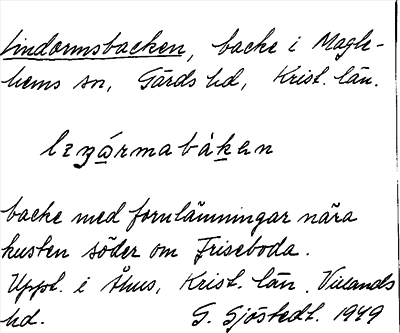 Lindormsbacken, backe i Magle-
hems sn, Gärds hd, Krist. län.
backe med fornlämningar nära
kusten söder om Friseboda.
Uppt. i Åhus, Krist. län, Villands
hd. G. Sjöstedt. 1949